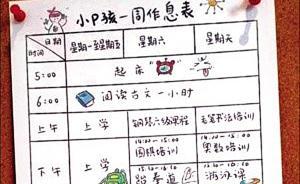 小P孩一周作息表
日期
时间
星期一至星期五 星期六 星期天
5:00 起床
6:00 阅读古文一小时
上午 上学 钢琴六级课程 毛笔书法培训
下午 上学 14:00-15:00 14:00-15:00
围棋培训 奥数培训
跆拳道 游泳课